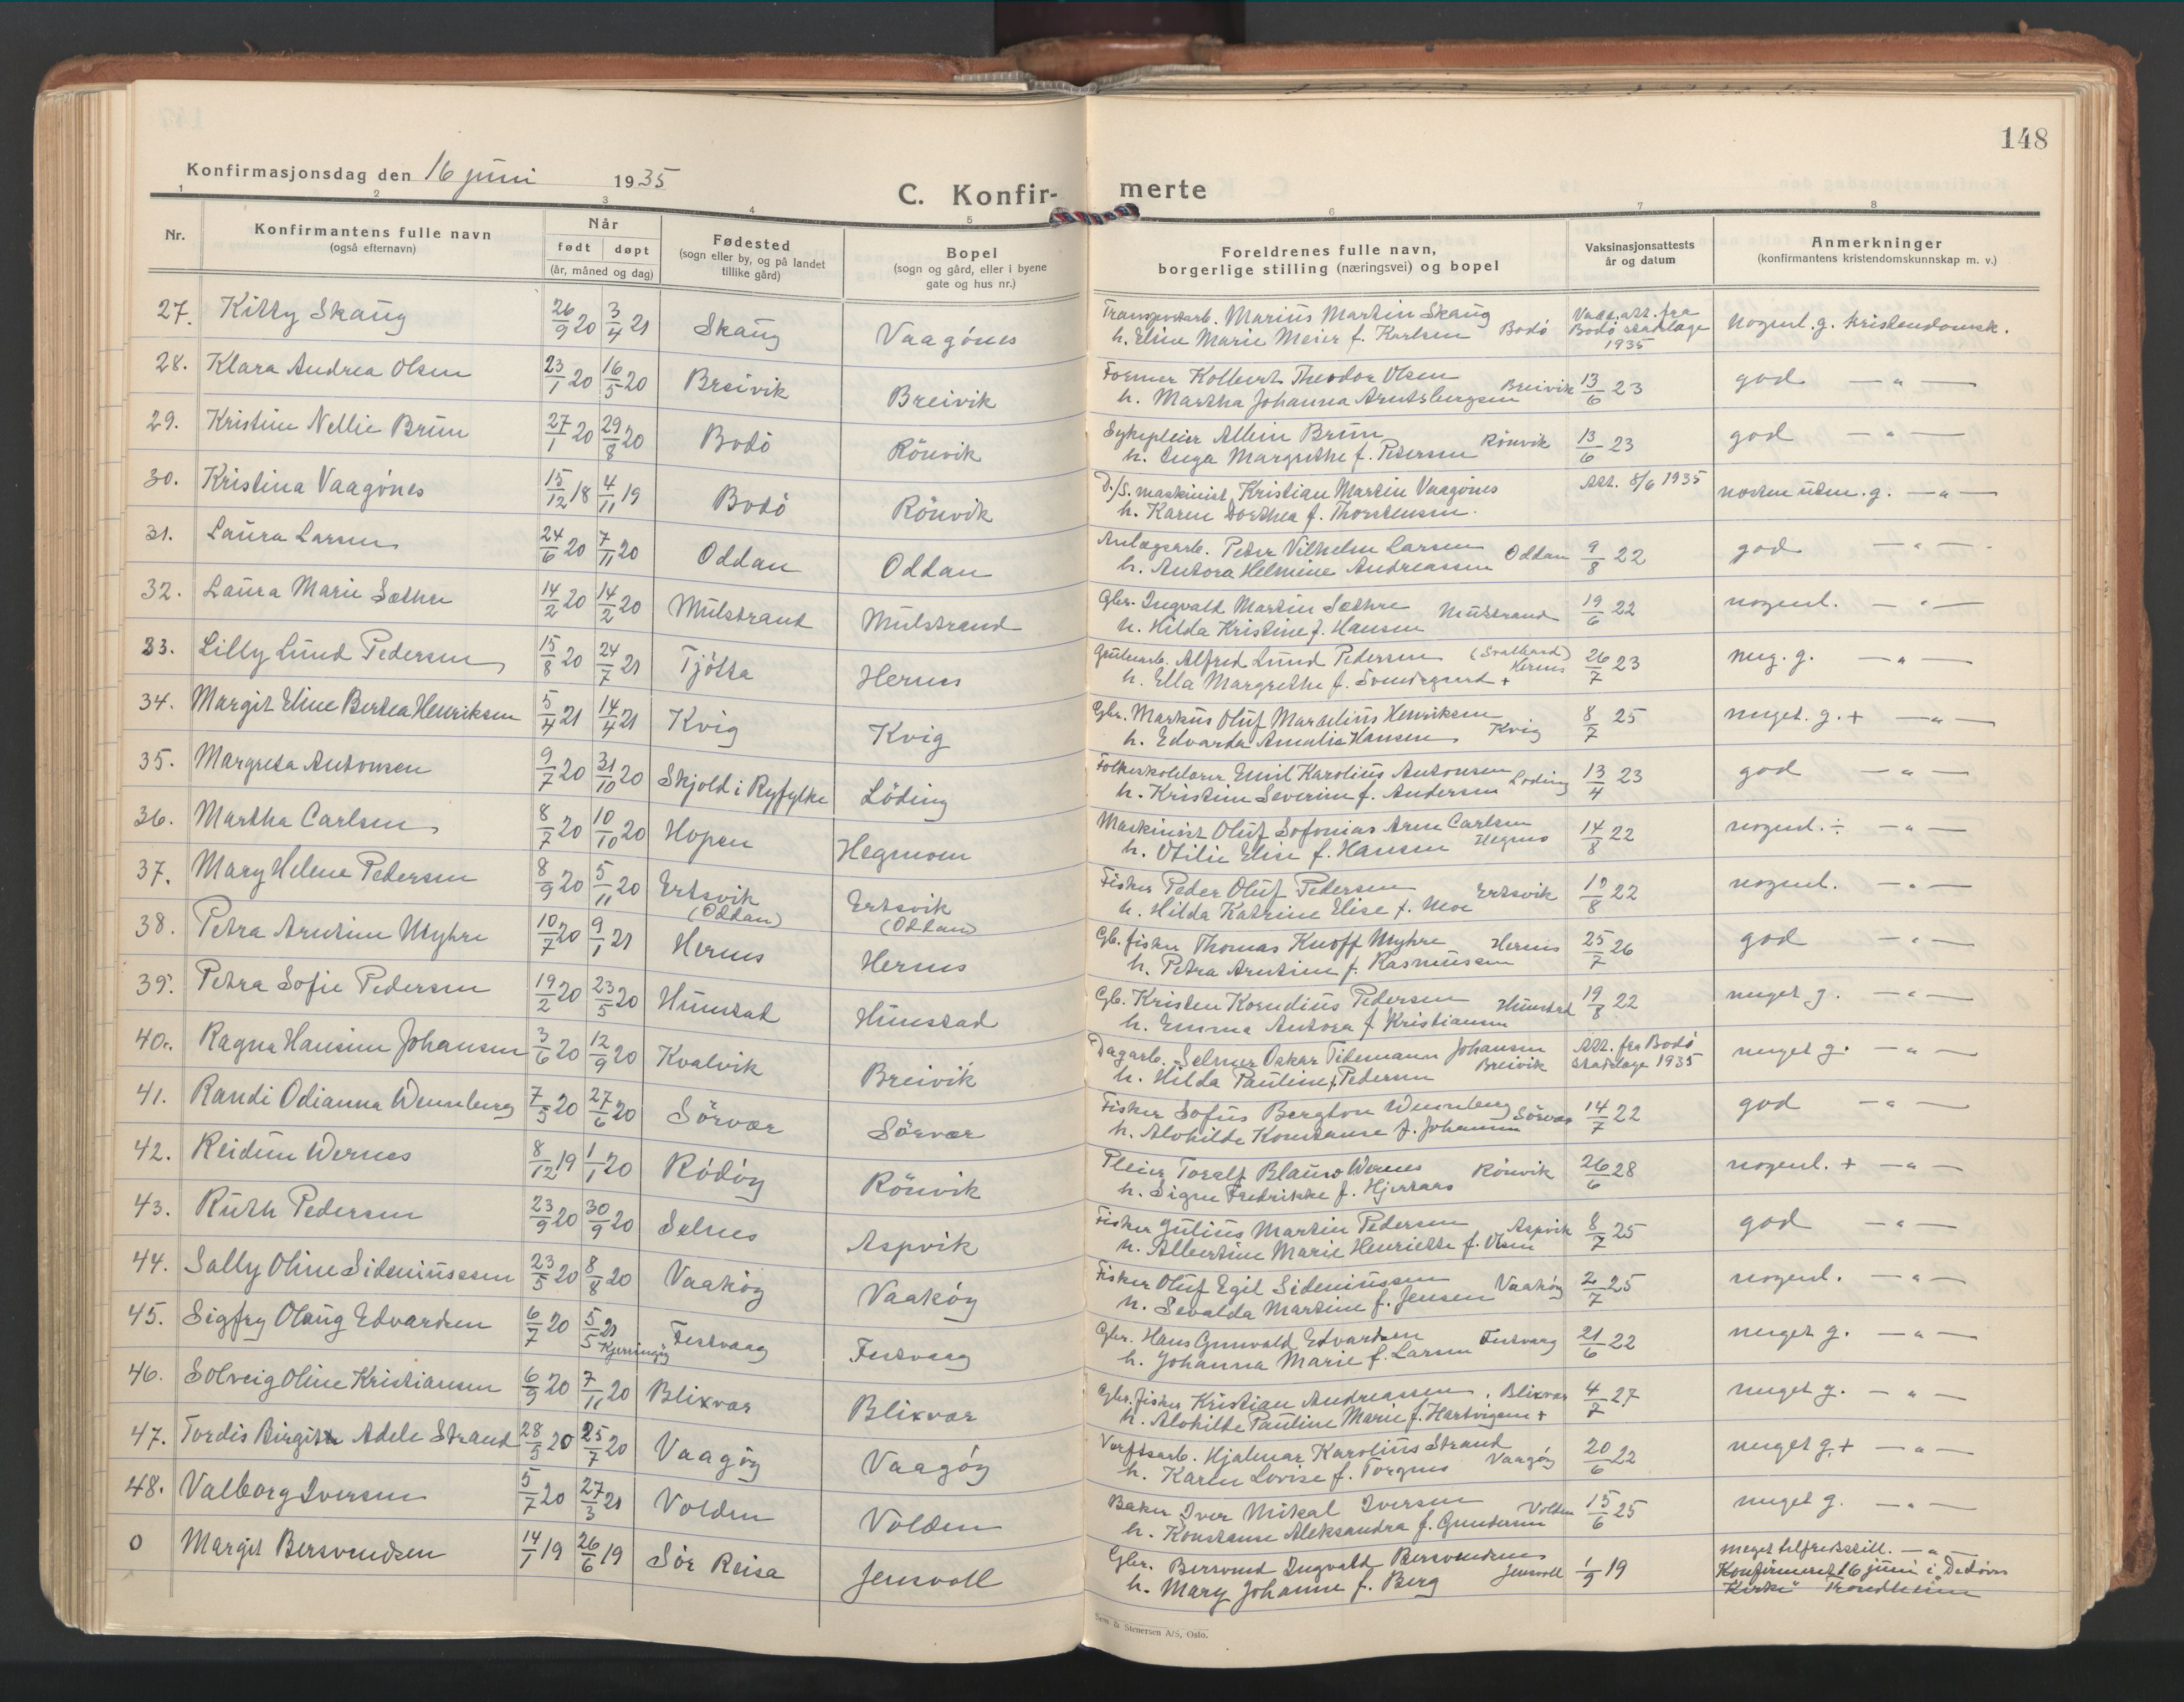 148
Konfirmasjonsdag den 16 juni 1935
C. Konfir- merte
1 2 3 4 5 6 7 8
Nr.
Konfirmantens fulle navn
(også efternavn)
Når
født døpt
(år, måned og dag)
Fødested
(sogn eller by, og på landet
tillike gård)
Bopel
(sogn og gård, eller i byene
gate og hus nr.)
Foreldrenes fulle navn,
borgerlige stilling (næringsvei) og bopel
Vaksinasjonsattests
år og datum
Anmerkninger
(konfirmantens kristendomskunnskap m. v.)
27. Kitty Skaug 26/9 20 3/4 21 Skaug Vaagönes Transportarb. Marius Martin Skaug
h. Elise Marie Meier f. Karlsen Bodö Vacc.att. fra Bodö stadslæge 1935 nogenl. g. kristendomsk.
28. Klara Andrea Olsen 23/1 20 16/5 20 Breivik Breivik Former Kolbert Theodor Olsen
h. Martha Johanna Arntsbergsen Breivik 13/6 23 god — " —
29. Kristine Nellie Brun 27/1 20 29/8 20 Bodö Rönvik Sykepleier Albin Brun
h. Inga Margrethe f. Petersen Rönvik 13/6 23 god — " —
30. Kristina Vaagönes 15/12 18 4/11 19 Bodö Rönvik D./S. maskinist Kristian Martin Vaagönes
h. Karen Dorthea f. Thorstensen. Att. 8/6 1935 noesten utm. g. — " —
31. Laura Larsen 24/6 20 7/11 20 Oddan Oddan Anlægsarb. Peder Vilhelm Larsen
h. Antora Helmine Andreassen Oddan 9/8 22 god — " —
32. Laura Marie Sæthre 14/2 20 14/2 20 Mulstrand Mulstrand Gbr. Ingvald Martin Sæthre
h. Hilda Kristine f. Hansen Mulstrand 19/6 22 nogenl. — " —
33. Lilly Lund Pedersen 15/8 20 24/7 21 Tjötta Hernes Grubearb. Alfred Lund Pedersen (Svalbard)
h. Ella Margrethe f. Svendsgaard + Hernes 26/7 23 meg. g. — " —
34. Margit Eline Bertea Henriksen 5/4 21 14/4 21 Kvig Kvig Gbr. Markus Oluf Marselius Henriksen
h. Edvarda Amalia Hansen Kvig 8/7 25 meget. g. + — " —
35. Margreta Antonsen 9/7 20 31/10 20 Skjold i Ryfylke Löding Folkeskolelærer Emil Karolius Antonsen
h. Kristine Severine f. Andersen Löding 13/4 23 god — " —
36. Martha Carlsen 8/7 20 10/10 20 Hopen Hegmoen Maskinist Oluf Sofonias Arne Carlsen
h. Otilie Elise f. Hansen Hegmo 14/8 22 nogenl. ÷ — " —
37. Mary Helene Pedersen 8/9 20 5/11 20 Ertsvik (Oddan) Ertsvik (Oddan) Fisker Peder Oluf Pedersen
h. Hilda Katrine Elise f. Moe Ertsvik 22 nogenl. — " —
38. Petra Arntine Myhre 10/7 20 9/1 21 Hernes Hernes Gb. fisker Thomas Knoff Myhre
h. Petra Arntine f. Rasmussen Hernes 25/7 26 god — " —
39. Petra Sofie Pedersen 19/2 20 23/5 20 Hunstad Hunstad Gb. Kristen Kornelius Pedersen
h. Emma Antora f. Kristiansen Hunstad 19/8 22 meget g. — " —
40. Ragna Hansine Johansen 3/6 20 12/9 20 Kvalvik Breivik Dagarb. Selmer Oskar Tidemann Johansen
h. Hilda Pauline f. Pedersen Breivik Att. fra Bodö stadslæge 1935 meget g. — " —
41. Randi Odianna Wennberg 7/5 20 27/6 20 Sörvær Sörvær Fisker Sofus Bergton Wennberg
h. Alvhilde Konstanse f. Johansen Sörvær 14/7 22 god — " —
42. Reidun Wernes 8/12 19 1/1 20 Rödöy Rönvik Pleier Toralf Wernes
h. Signe Fredrikke f. Hjertaas Rönvik 26/6 28 nogenl. + — " —
43. Ruth Pedersen 23/9 20 30/9 20 Selnes Aspvik Fisker Julius Martin Pedersen
h. Albertine Marie Henriette f. Olsen Aspvik 8/7 25 god — " —
44. Sally Oline Sideniussen 23/5 20 8/8 20 Vaaköy Vaaköy Fisker Oluf Egil Sideniussen
h. Sevalda Martine f. Jensen Vaaköy 2/7 25 nogenl. — " —
45. Sigfry Olaug Edvardsen 6/7 20 5/5 21 Kjerringöy Festvaag Festvaag Gbr. Hans Gunvald Edvardsen
h. Johanna Marie f. Larsen Festvaag 21/6 22 meget g. — " —
46. Solveig Oline Kristiansen 6/9 20 7/11 20 Blixvær Blixvær Gbr. fisker Kristian Andreassen
h. Alvhilde Pauline Marie f. Hartvigsen + Blixvær 4/7 27 meget g. — " —
47. Tordis Birgitte Adele Strand 28/5 20 25/7 20 Vaagöy Vaagöy Verftsarb. Hjalmar Karolius Strand
h. Karen Lovise f. Torgnes Vaagöy 20/6 22 meget g. + — " —
48. Valborg Iversen 5/7 20 27/3 21 Volden Volden Baker Iver Mikal Iversen
h. Konstanse Aleksandra f. Gundersen Volden 15/6 25 meget g. — " —
0 Margit Bersvendsen 14/1 19 26/6 19 Sör Reisa Jensvoll Gbr. Bersvend Ingvald Bersvendsen
h. Mary Johanne f. Berg Jensvoll 1/9 19 meget tilfredsstill. — " —
Konfirmeret 16 juni i "De döves
Kirke" Trondheim
Sem & Stenersen A/S, Oslo.